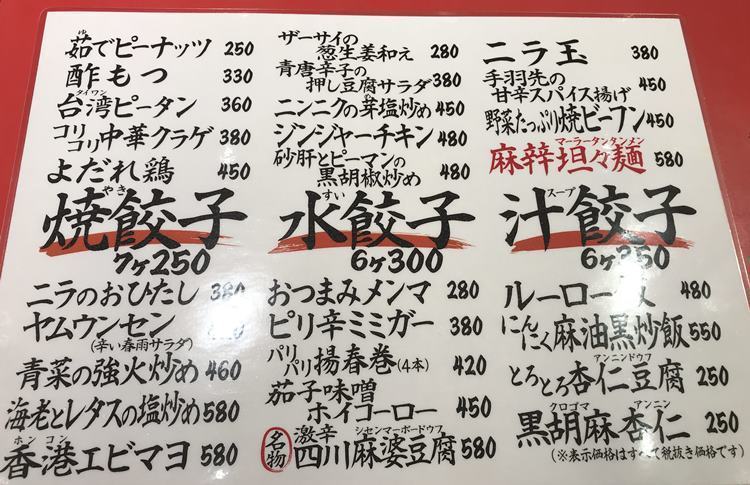 茹でピーナッツ 250
酢もつ 330
台湾ピータン 360
コリコリ中華クラゲ 380
よだれ鶏 450
ザーサイの
葱生姜和え 280
青唐辛子の
押し豆腐サラダ 380
ニンニクの芽塩炒め 450
ジンジャーチキン 480
砂肝とピーマンの
黒胡椒炒め 480
ニラ玉 380
手羽先の
甘辛スパイス揚げ 450
野菜たっぷり焼ビーフン 450
マーラータンタンメン
麻辛坦々麺 580
やき
焼餃子
7ヶ250
すい
水餃子
6ヶ300
スープ
汁餃子
6ヶ250
ニラのおひたし 380
ヤムウンセン
(辛い春雨サラダ)
青菜の強火炒め 460
海老とレタスの塩炒め 580
ホンコン
香港エビマヨ 580
おつまみメンマ 280
ピリ辛ミミガー 380
パリパリ揚春巻(4本) 420
茄子味噌
ホイコーロー 450
名物
激辛 シセンマーボードウフ
四川麻婆豆腐 580
ルーロー 480
にんにく麻油黒炒飯 550
アンニンドウフ
とろとろ杏仁豆腐 250
クロゴマ アンニン
黒胡麻杏仁 250
(※表示価格はすべて税抜き価格です)